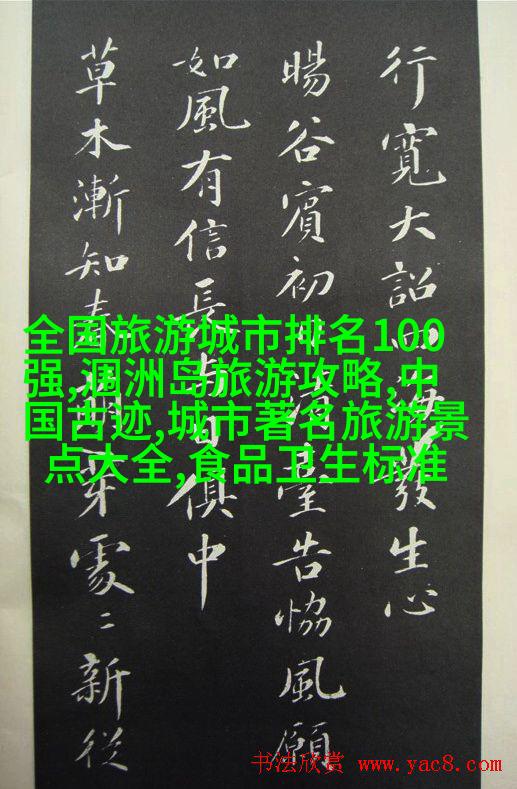 行寬大詔四海發生心
暘谷賓初日清臺告協風願
如風有信長與日俱中
草木漸知春萌芽處〻新從
全国旅游城市排名100
强,涠洲岛旅游攻略,中
国古迹,城市著名旅游景
点大全,食品卫生标准
书法欣赏 www.yac8.com